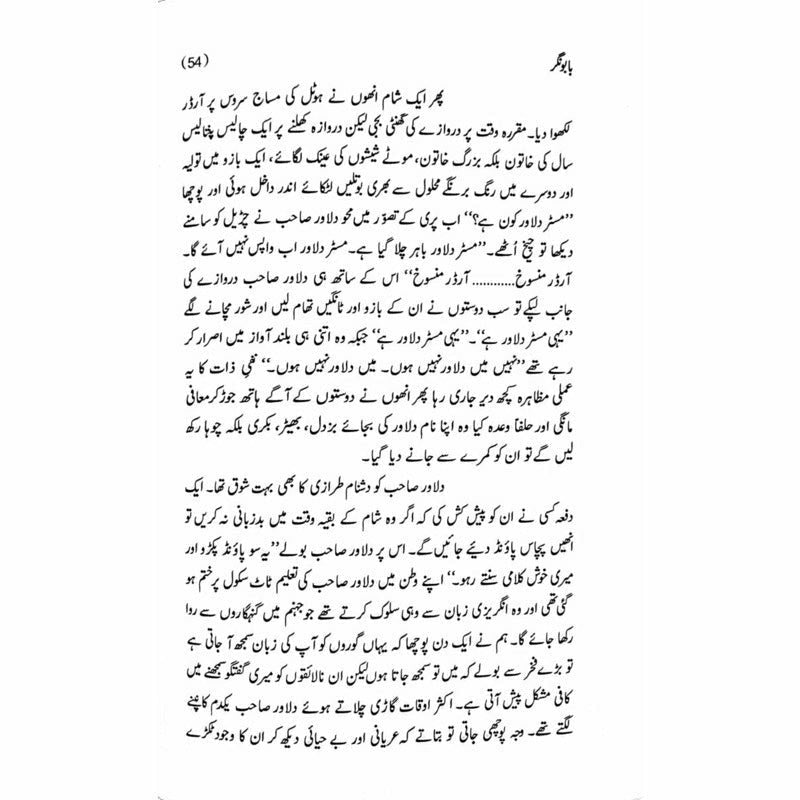 بابونگر (54)
پھر ایک شام انھوں نے ہوٹل کی مساج سروس پر آرڈر
لکھوا دیا۔ مقررہ وقت پر دروازے کی گھنٹی بجی لیکن دروازہ کھلنے پر ایک چالیس پنتالیس
سال کی خاتون بلکہ بزرگ خاتون، موٹے شیشوں کی عینک لگائے، ایک بازو میں تولیہ
اور دوسرے میں رنگ برنگے محلول سے بھری بوتلیں لٹکائے اندر داخل ہوئی اور پوچھا
”مسٹر دلاور کون ہے؟“ اب پری کے تصوّر میں محو دلاور صاحب نے چڑیل کو سامنے
دیکھا تو چیخ اُٹھے۔ ”مسٹر دلاور باہر چلا گیا ہے۔ مسٹر دلاور اب واپس نہیں آئے گا۔
آرڈر منسوخ............ آرڈر منسوخ“ اس کے ساتھ ہی دلاور صاحب دروازے کی
جانب لپکے تو سب دوستوں نے ان کے بازو اور ٹانگیں تھام لیں اور شور مچانے لگے
”یہی مسٹر دلاور ہے“۔ ”یہی مسٹر دلاور ہے“ جبکہ وہ اتنی ہی بلند آواز میں اصرار کر
رہے تھے ”نہیں میں دلاور نہیں ہوں۔ میں دلاور نہیں ہوں۔“ نفیِ ذات کا یہ
عملی مظاہرہ کچھ دیر جاری رہا پھر انھوں نے دوستوں کے آگے ہاتھ جوڑ کر معافی
مانگی اور حلفاً وعدہ کیا وہ اپنا نام دلاور کی بجائے بزدل، بھیڑ، بکری بلکہ چوہا رکھ
لیں گے تو ان کو کمرے سے جانے دیا گیا۔
دلاور صاحب کو دشنام طرازی کا بھی بہت شوق تھا۔ ایک
دفعہ کسی نے ان کو پیش کش کی کہ اگر وہ شام کے بقیہ وقت میں بدزبانی نہ کریں تو
انھیں پچاس پاؤنڈ دیئے جائیں گے۔ اس پر دلاور صاحب بولے ”یہ سو پاؤنڈ پکڑو اور
میری خوش کلامی سنتے رہو۔“ اپنے وطن میں دلاور صاحب کی تعلیم ٹاٹ سکول پر ختم ہو
گئی تھی اور وہ انگریزی زبان سے وہی سلوک کرتے تھے جو جہنم میں گنہگاروں سے روا
رکھا جائے گا۔ ہم نے ایک دن پوچھا کہ یہاں گوروں کو آپ کی زبان سمجھ آ جاتی ہے
تو بڑے فخر سے بولے کہ میں تو سمجھ جاتا ہوں لیکن ان نالائقوں کو میری گفتگو سمجھنے میں
کافی مشکل پیش آتی ہے۔ اکثر اوقات گاڑی چلاتے ہوئے دلاور صاحب یکدم کانپنے
لگتے تھے۔ وجہ پوچھی جاتی تو بتاتے کہ عریانی اور بے حیائی دیکھ کر ان کا وجود ٹکڑے